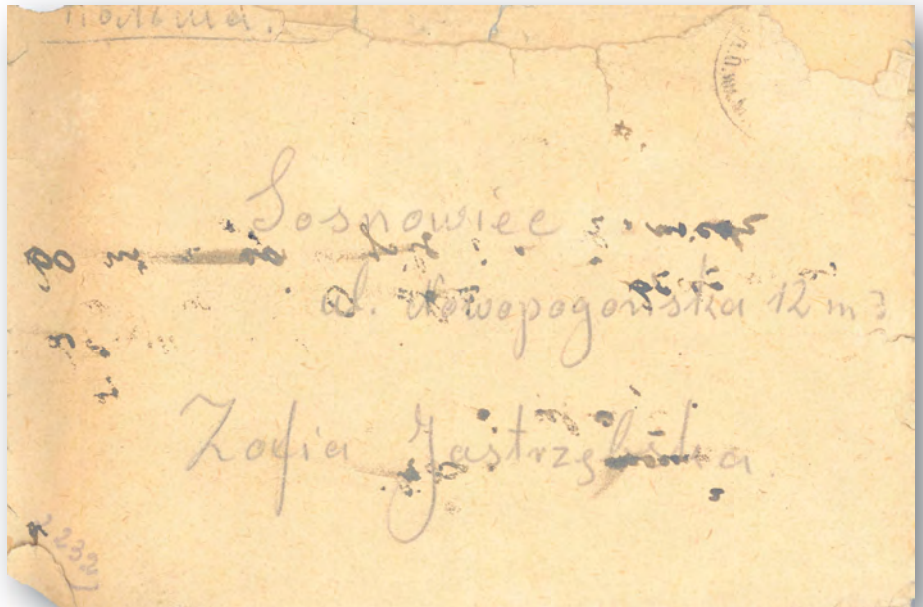 Польша.
Sosnowiec
ul. Nowopogońska 12 m 3
Zofia Jastrzębska
232